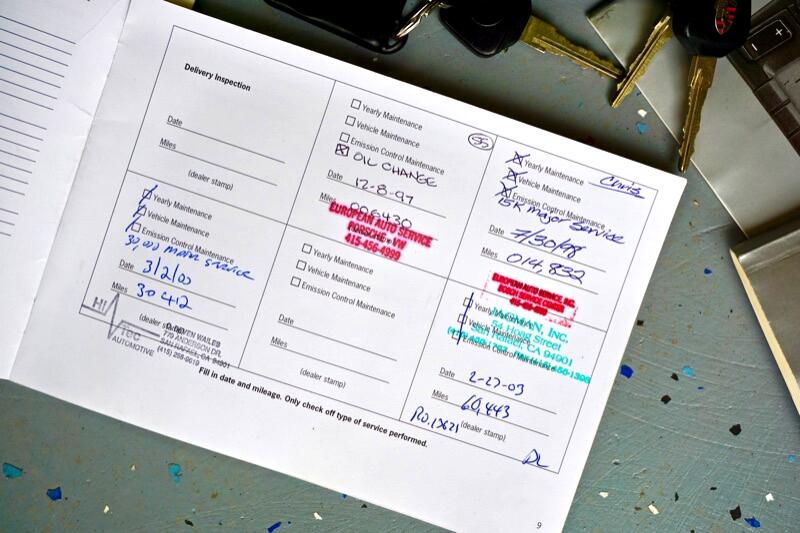 Delivery Inspection
Date
Miles
(dealer stamp)
Yearly Maintenance
Vehicle Maintenance
Emission Control Maintenance
OIL CHANGE
Date 12-8-97
Miles 006430
EUROPEAN AUTO SERVICE
PORSCHE VW
415-456-4999
55
Chris
Yearly Maintenance
Vehicle Maintenance
Emission Control Maintenance
15K Major Service
Date 7/30/98
Miles 014,832
Yearly Maintenance
Vehicle Maintenance
Emission Control Maintenance
Date 3/2/00
Miles 30412
(dealer stamp)
HI TEC
AUTOMOTIVE
779 ANDERSON DR.
SAN RAFAEL, CA. 94901
Yearly Maintenance
Vehicle Maintenance
Emission Control Maintenance
Date
Miles
(dealer stamp)
EUROPEAN AUTO SERVICE, INC.
INC.
54 Hoag Street
San Rafael, CA 94901
Emission Control Maintenance
Date 2-27-03
Miles 60,443
RO.13621
(dealer stamp)
DL
Fill in date and mileage. Only check off type of service performed.
9
+
-